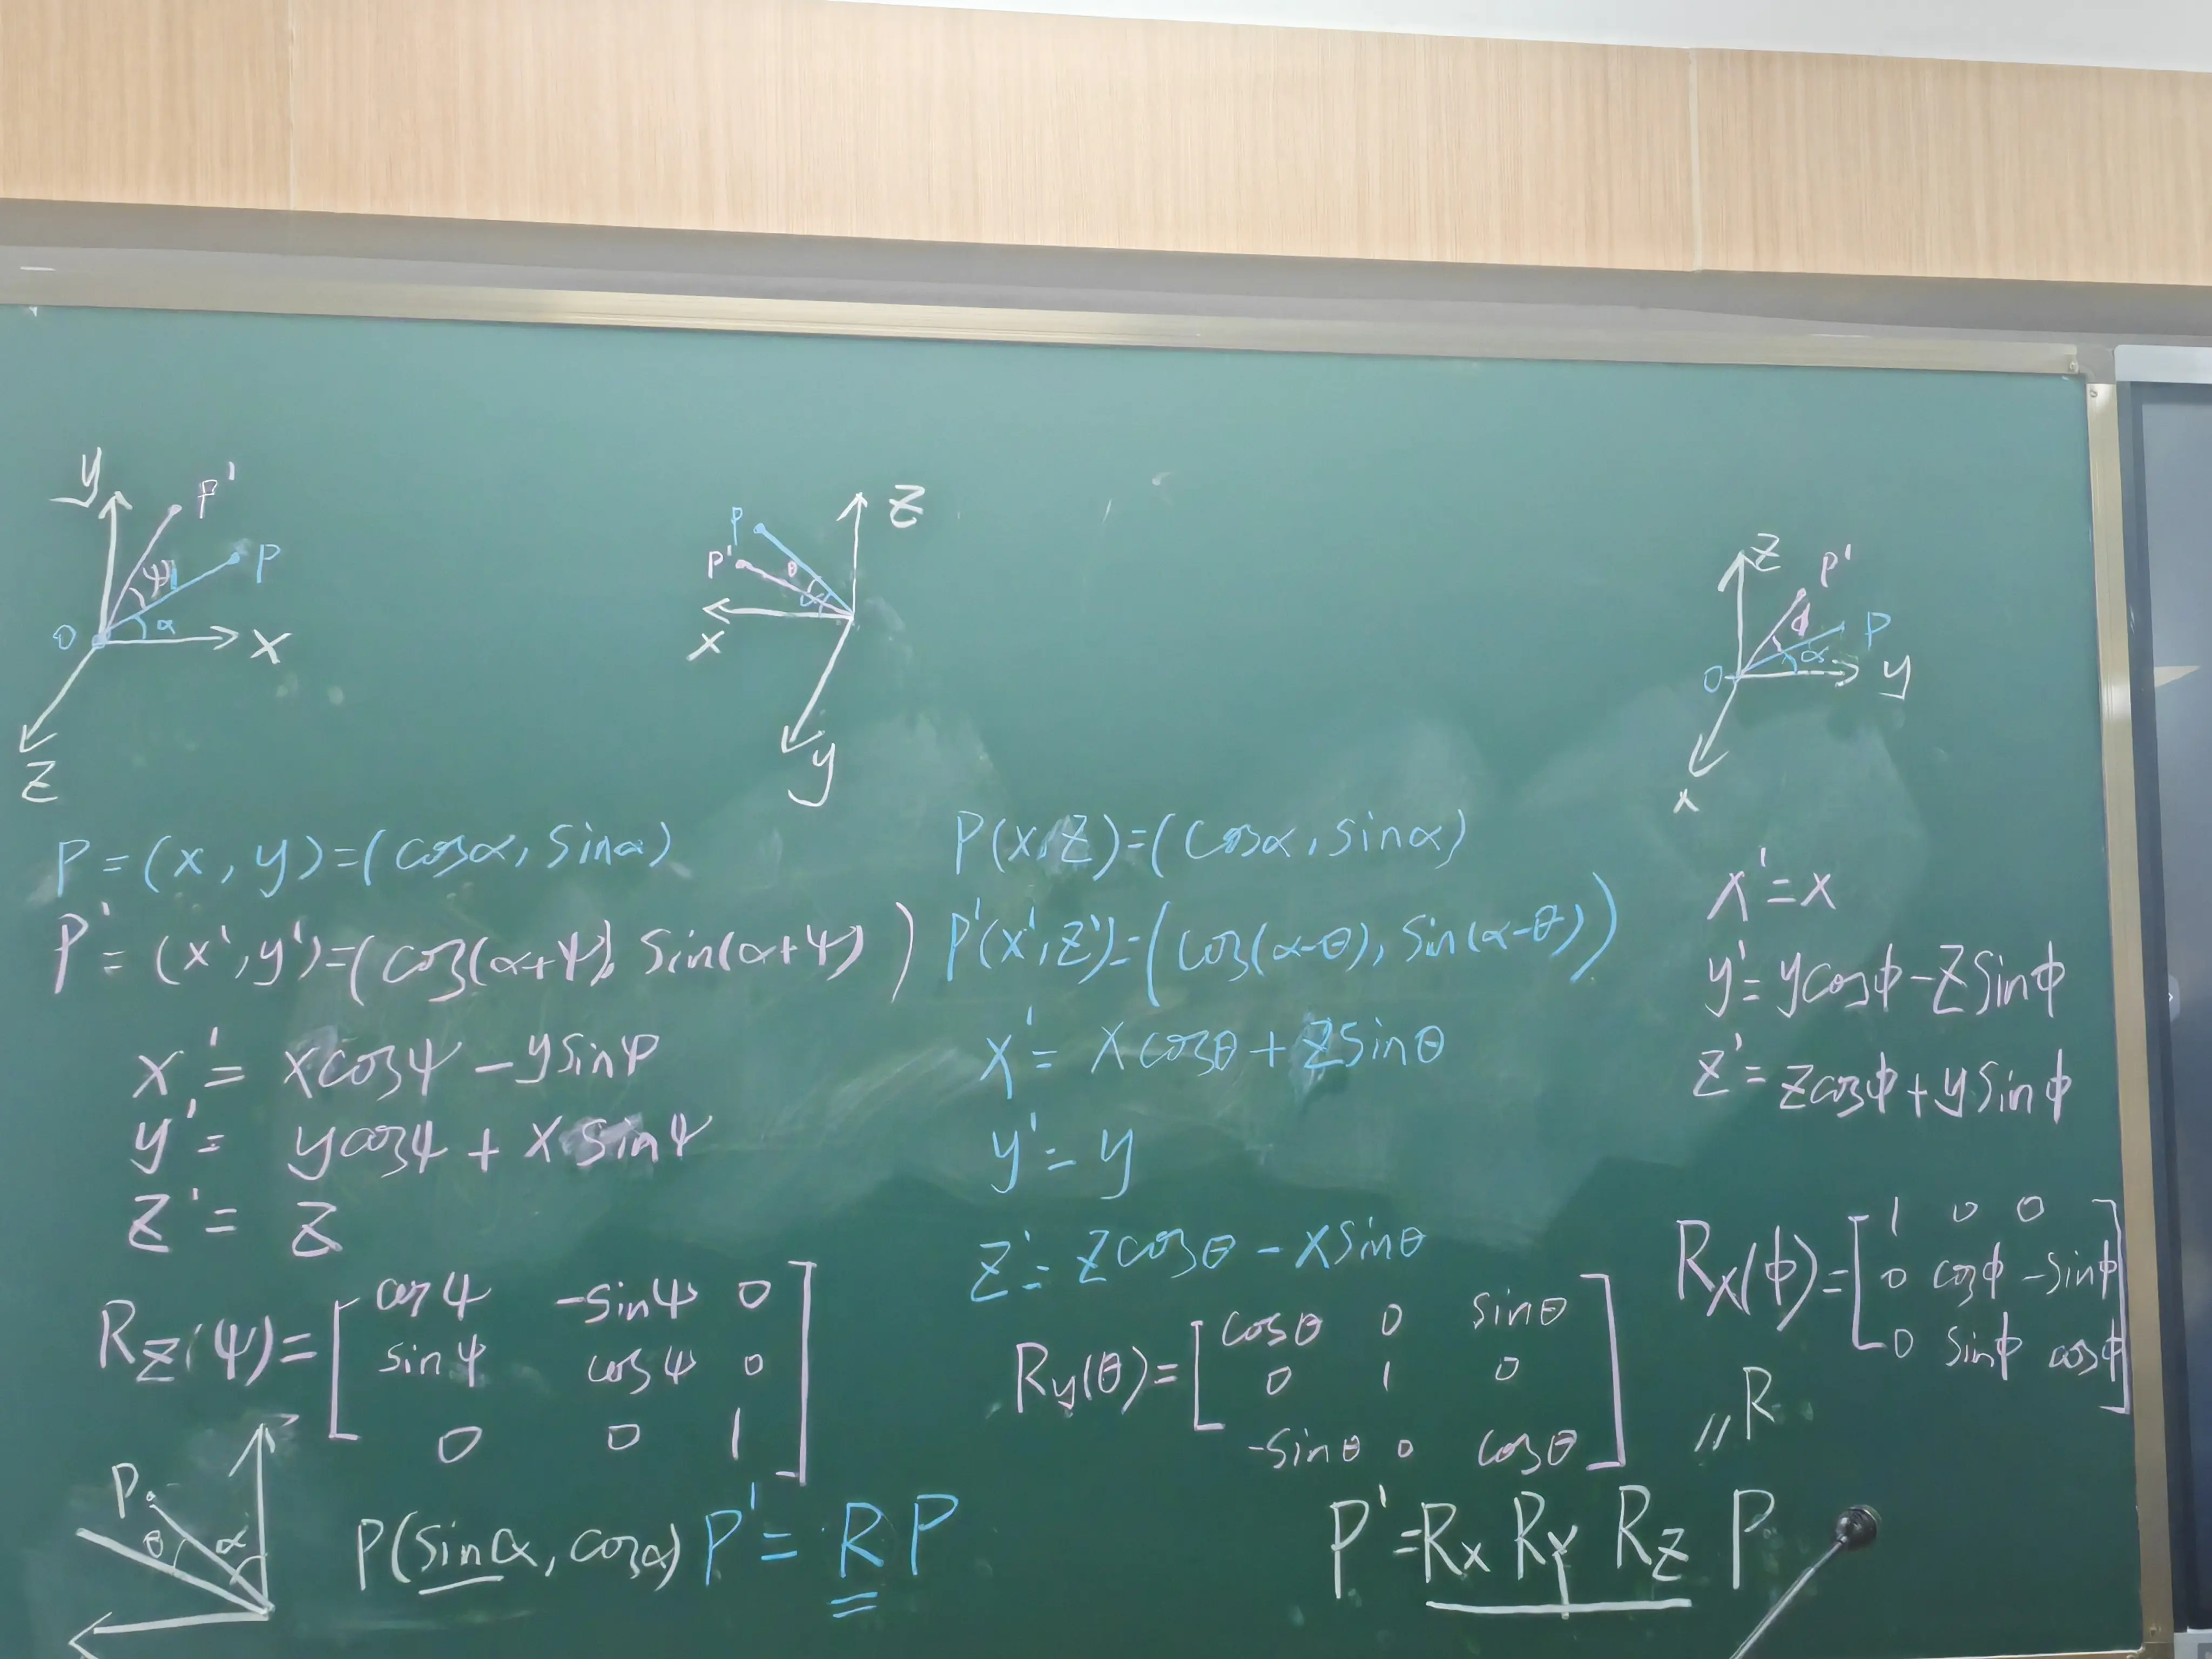 y P'
ψ P
O α x
z
z
P
P' θ
α
x
y
z P'
ϕ P
O α y
x
P=(x,y)=(cosα,sinα)
P'=(x',y')=(cos(α+ψ), sin(α+ψ))
x'= xcosψ-ysinψ
y'= ycosψ+xsinψ
z'= z
Rz(ψ)=[cosψ -sinψ 0
sinψ cosψ 0
0 0 1]
P(x,z)=(cosα,sinα)
P'(x',z')=(cos(α-θ),sin(α-θ))
x'= xcosθ+zsinθ
y'= y
z'= zcosθ-xsinθ
Ry(θ)=[cosθ 0 sinθ
0 1 0
-sinθ 0 cosθ]
x'=x
y'=ycosϕ-zsinϕ
z'=zcosϕ+ysinϕ
Rx(ϕ)=[1 0 0
0 cosϕ -sinϕ
0 sinϕ cosϕ]
P
θ α
P(sinα,cosα) P'=RP
//R
P'=Rx Ry Rz P